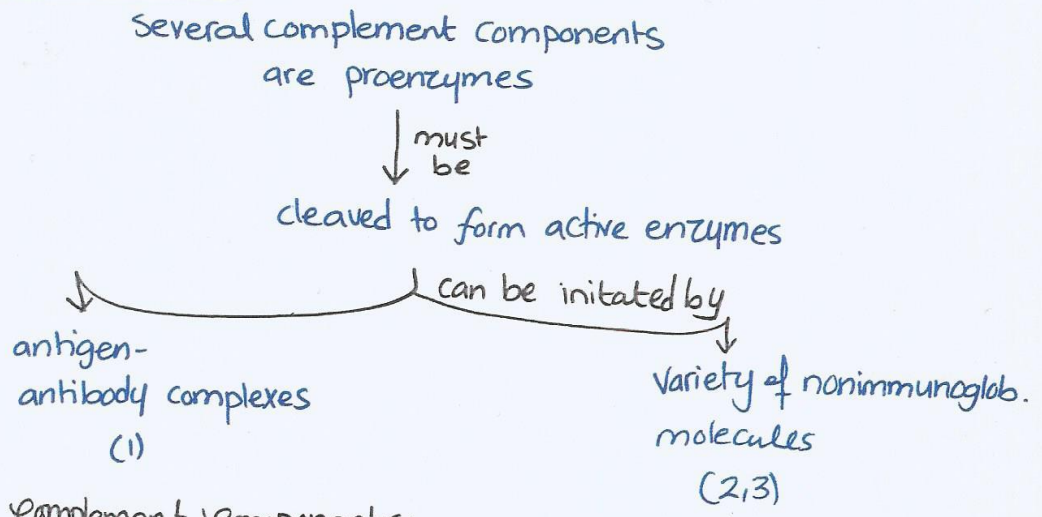 Several complement components
are proenzymes
must
be
cleaved to form active enzymes
can be initated by
antigen-
antibody complexes
(1)
Variety of nonimmunoglob.
molecules
(2,3)